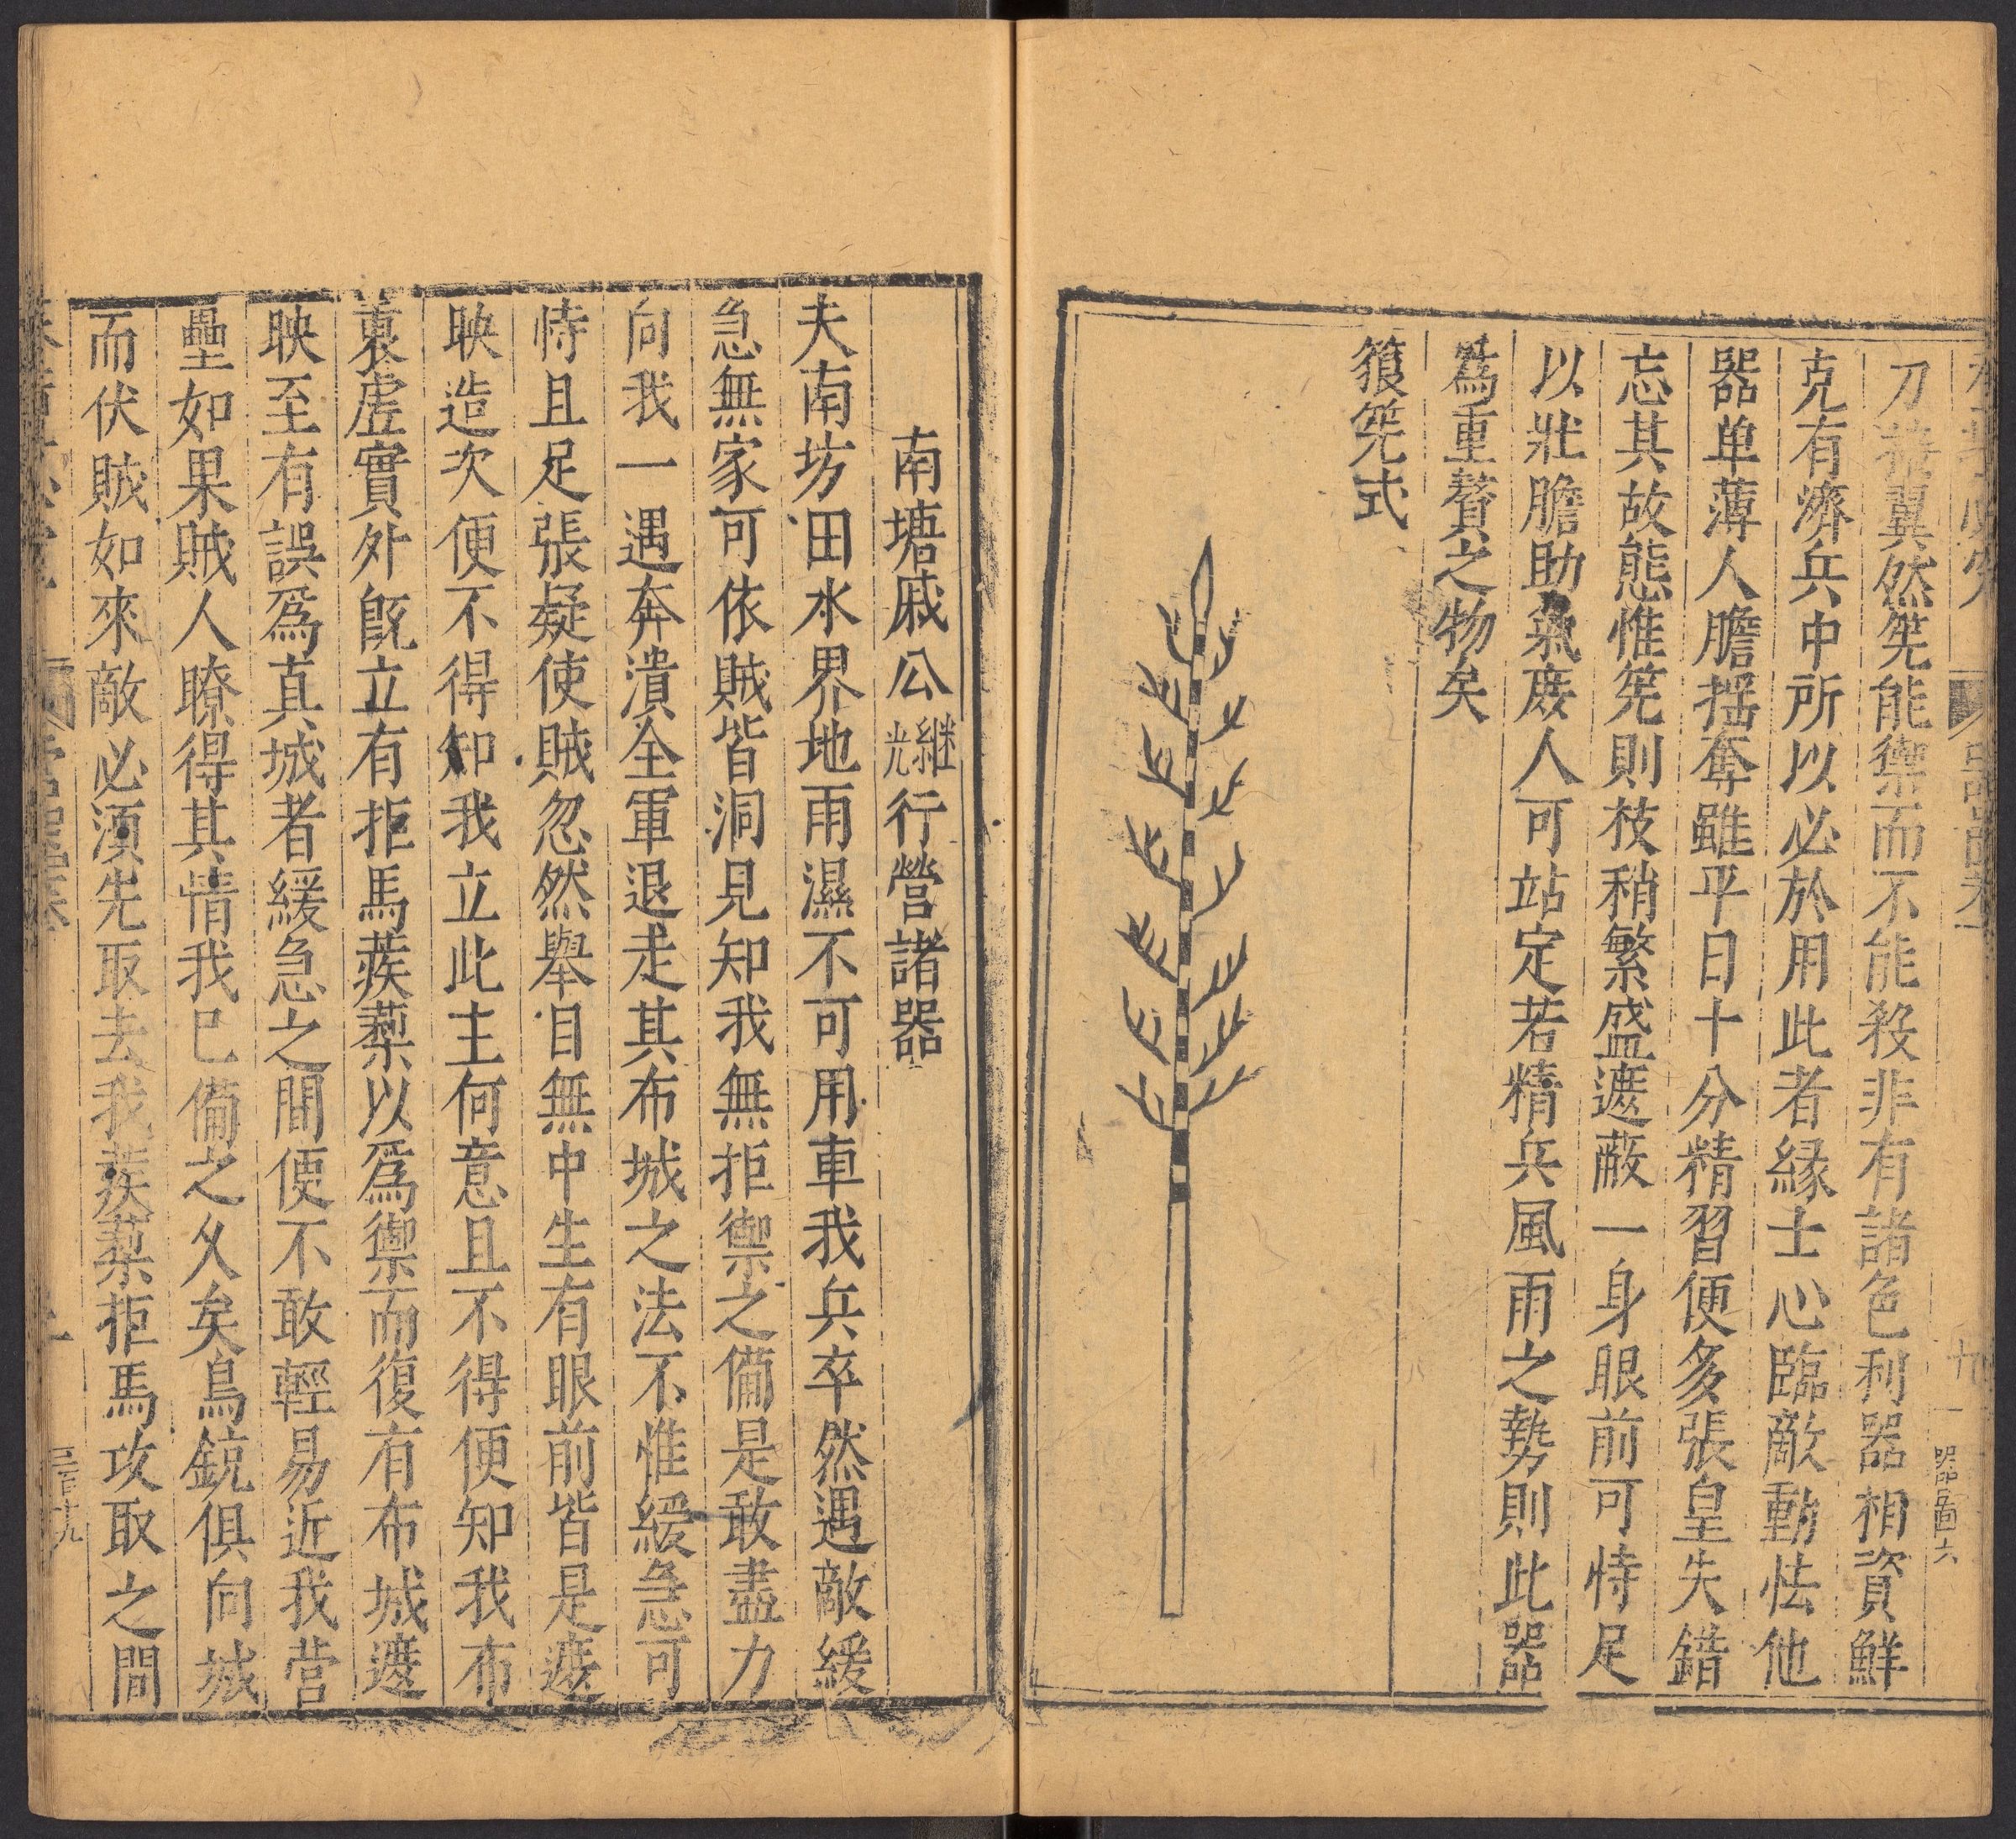 刀
翼然筅能禦而不能殺非有諸色利器相資鮮
克有濟兵中所以必於用此者緣士心臨敵動怯他
器单薄人膽揺奪雖平日十分精習便多張皇失錯
忘其故態惟筅則枝稍繁盛遮蔽一身眼前可恃足
以壯膽助氣庻人可站定若精兵風雨之勢則此器
爲重贅之物矣
狼筅式
器圖六
南塘戚公繼光行營諸器
夫南坊田水界地雨濕不可用車我兵卒然遇敵緩
急無家可依賊皆洞見知我無拒禦之備是敢盡力
向我一遇奔潰全軍退走其布城之法不惟緩急可
恃且足張疑使賊忽然舉目無中生有眼前皆是遮
映造次便不得知我立此主何意且不得便知我布
裏虛實外旣立有拒馬蒺蔾以爲禦而復有布城遮
映至有誤爲真城者緩急之間便不敢輕易近我营
壘如果賊人瞭得其情我已備之久矣鳥銃俱向城
而伏賊如來敵必湏先取去我蒺蔾拒馬攻取之間
三百十九